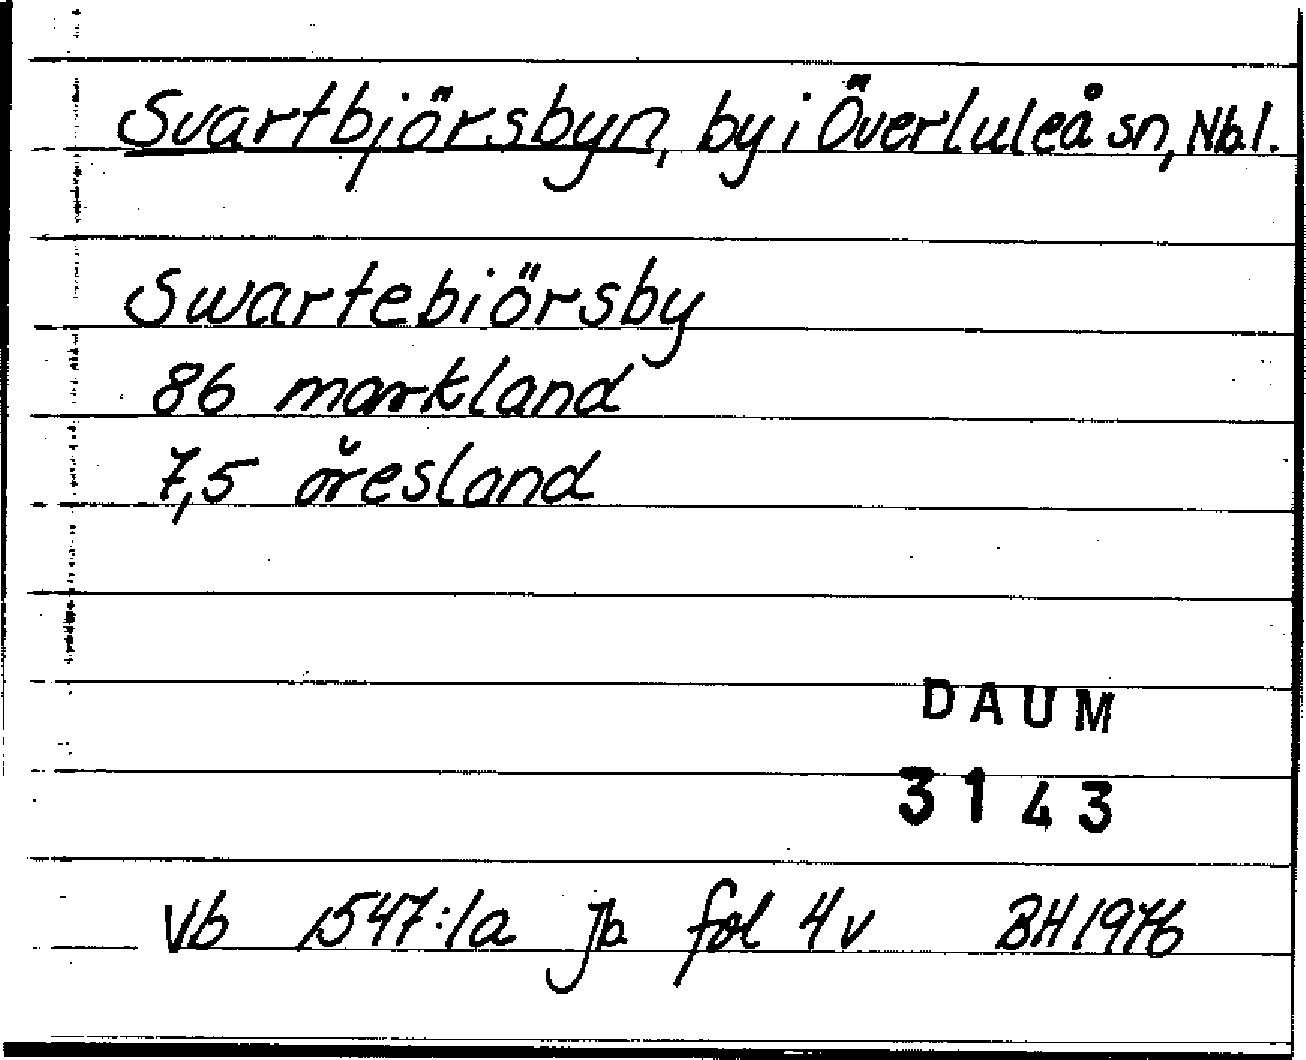 Svartbjörsbyn, by i Överluleå sn, Nb.l.
Swartebiörsby
86 markland
7,5 öresland
DAUM
3143
Vb 1547:1a Jb fol 4v BH 1976